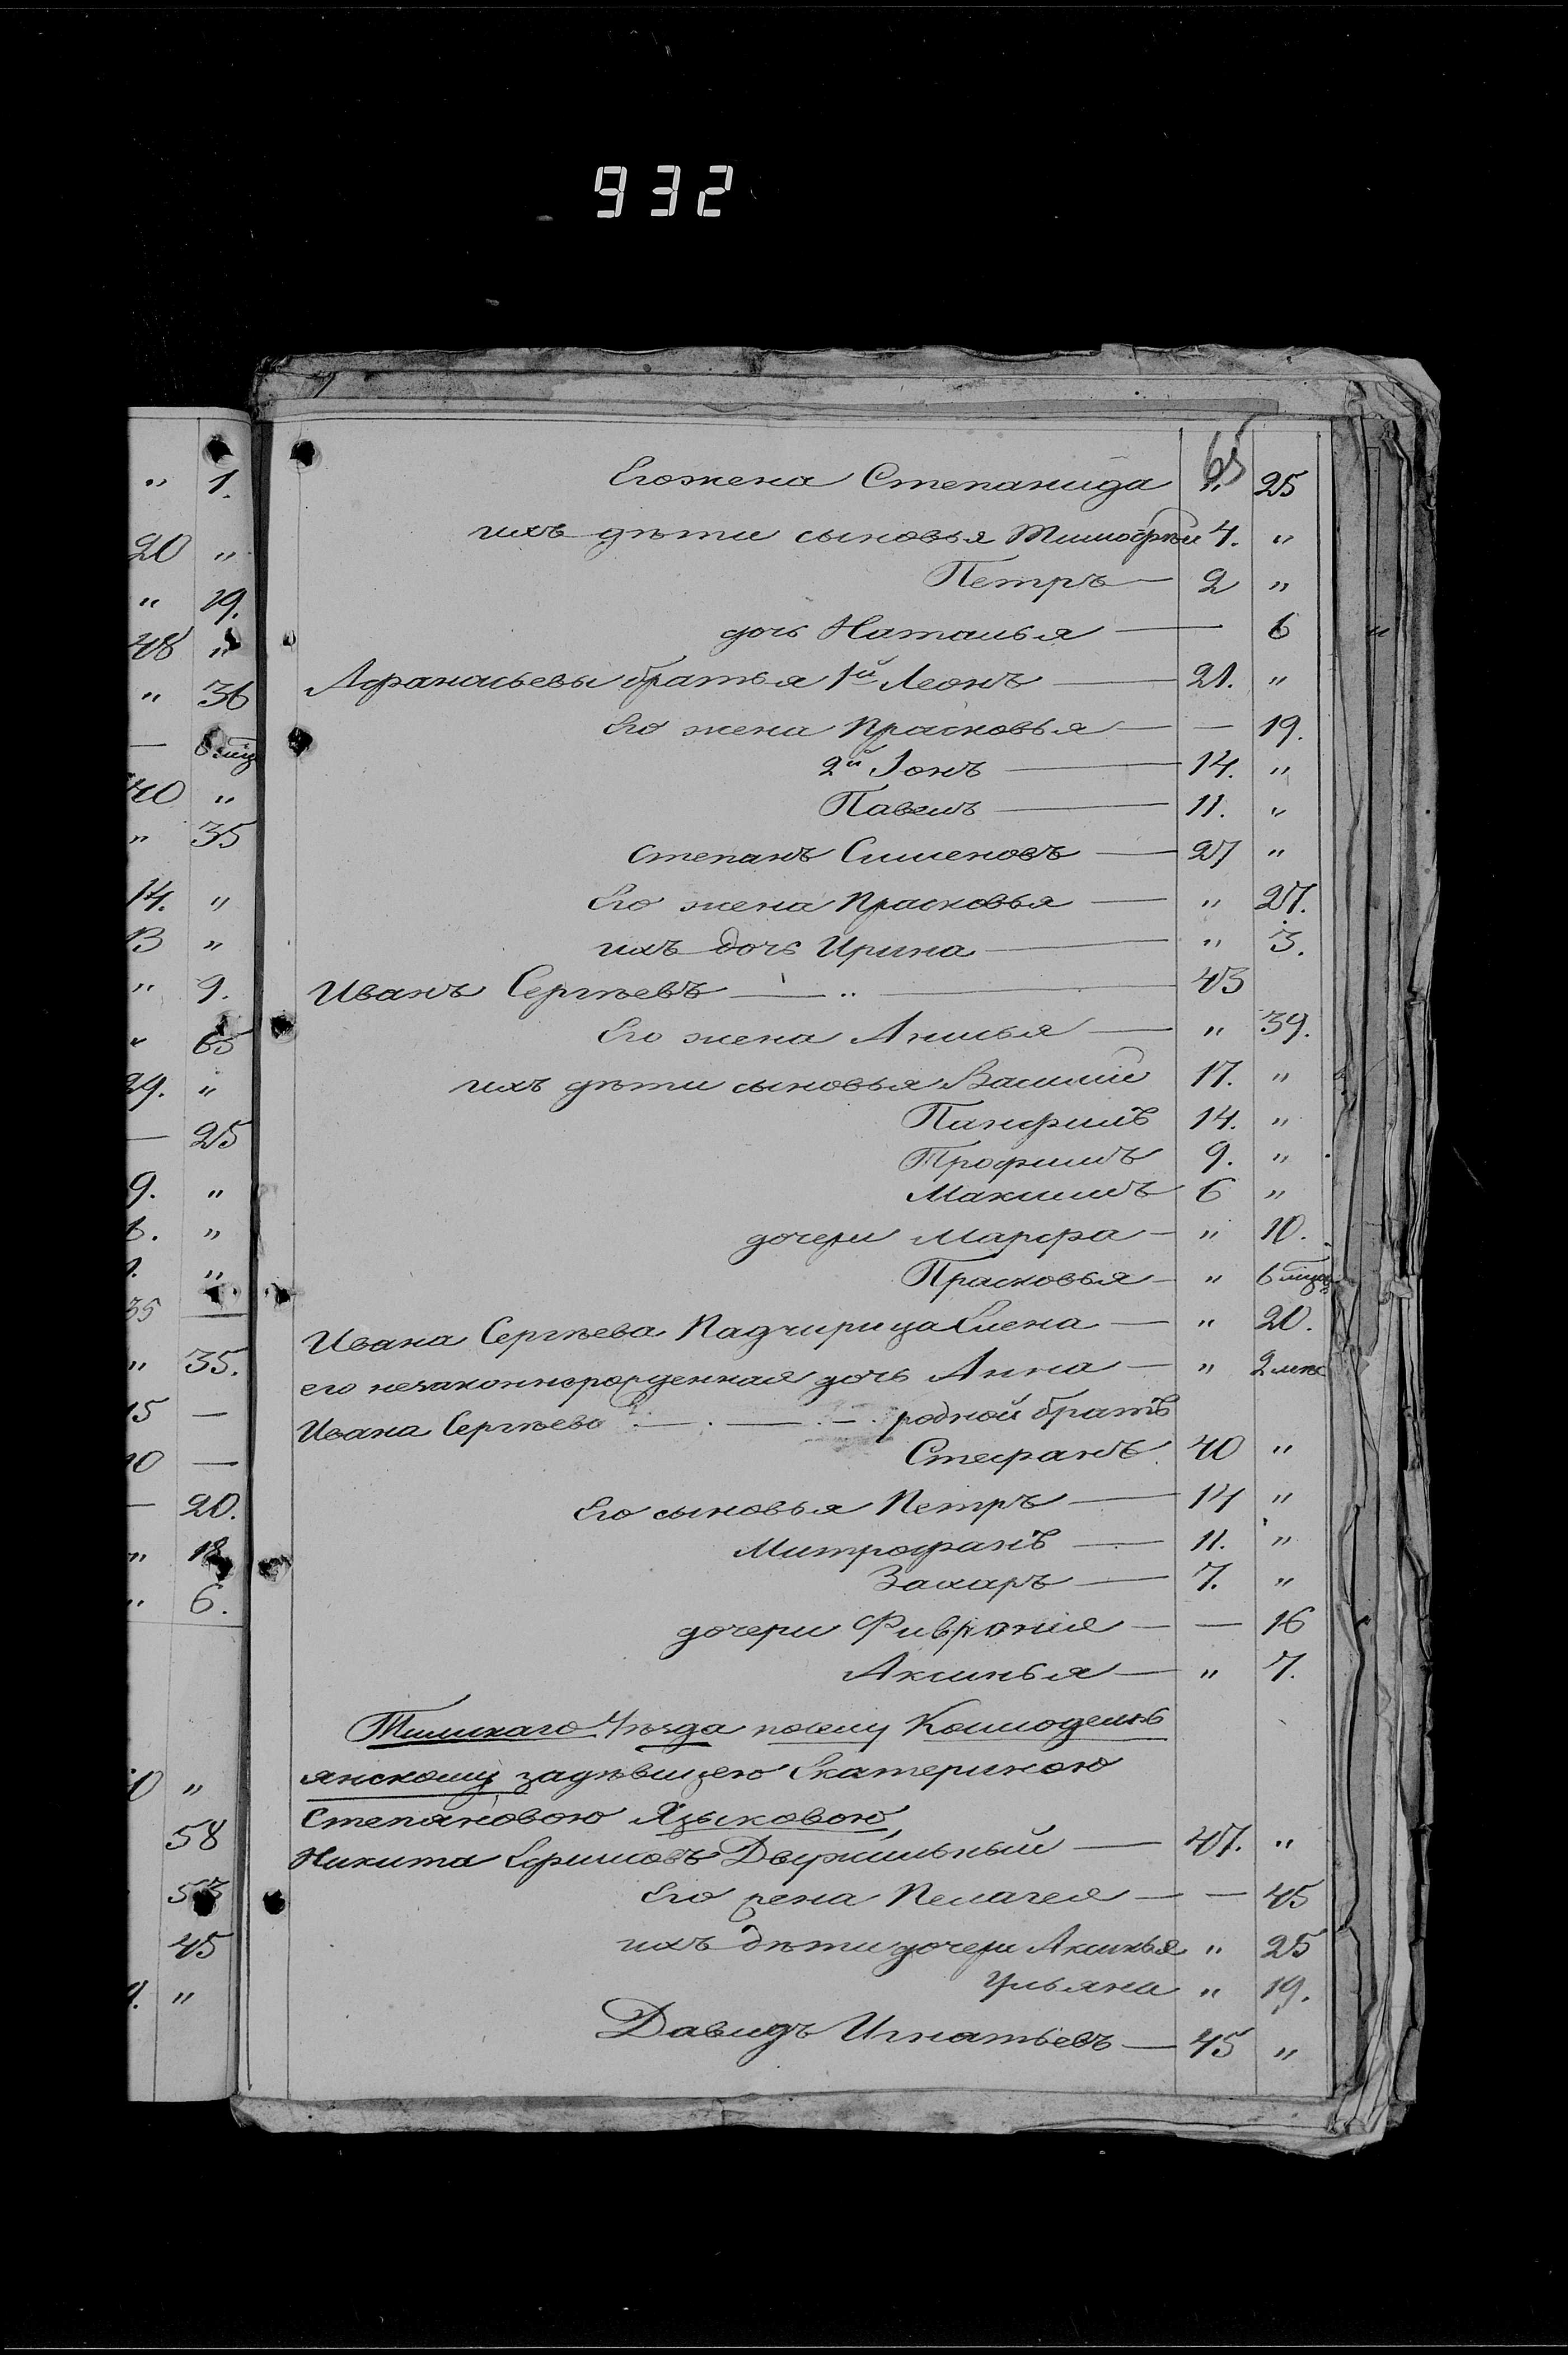 932
65
Его жена Степанида " 25
ихъ дѣти сыновья Тимофѣй 4. "
Петръ — 2 "
дочь Наталья — 6
Афанасьевы братья 1й Леонъ — 21. "
Его жена Прасковья — — 19.
2й Іонъ — 14. "
Павелъ — 11. "
Степанъ Сименовъ — 27 "
Его жена Прасковья — " 27.
ихъ дочь Ирина — " 3.
Иванъ Сергѣевъ — 43
Его жена Анисья — " 39.
ихъ дѣти сыновья Василій 17. "
Панфилъ 14. "
Трофимъ 9. "
Максимъ 6 "
дочери Марфа — " 10.
Прасковья — " 6 мцъ
Ивана Сергѣева Падчирица Елена — " 20.
его незаконнорожденная дочь Анна — " 2
Ивана Сергѣева — . — . — . родной братъ
Стефанъ 40 "
Его сыновья Петръ — 14 "
Митрофанъ — 11. "
Захаръ — 7. "
дочери Фиврония — — 16
Аксинья — " 7.
Тимскаго Уѣзда Космодемь
янскому задѣвицею Екатериною
Степановою Языковою,
Никита Ефимовъ Двужильный — 47. "
Его жена Пелагея — — 45
ихъ дѣти дочери Аксинья " 25
Ульяна " 19.
Давидъ Игнатьевъ — 45 "
" 1.
20 "
" 19.
48 "
" 36
— 6 мцъ
40 "
" 35
14. "
13 "
" 9.
" 65
29. "
— 25
9. "
6. "
1. "
35 —
" 35.
15 —
10 —
— 20.
" 18
" 6.
0 "
58
53
45
"